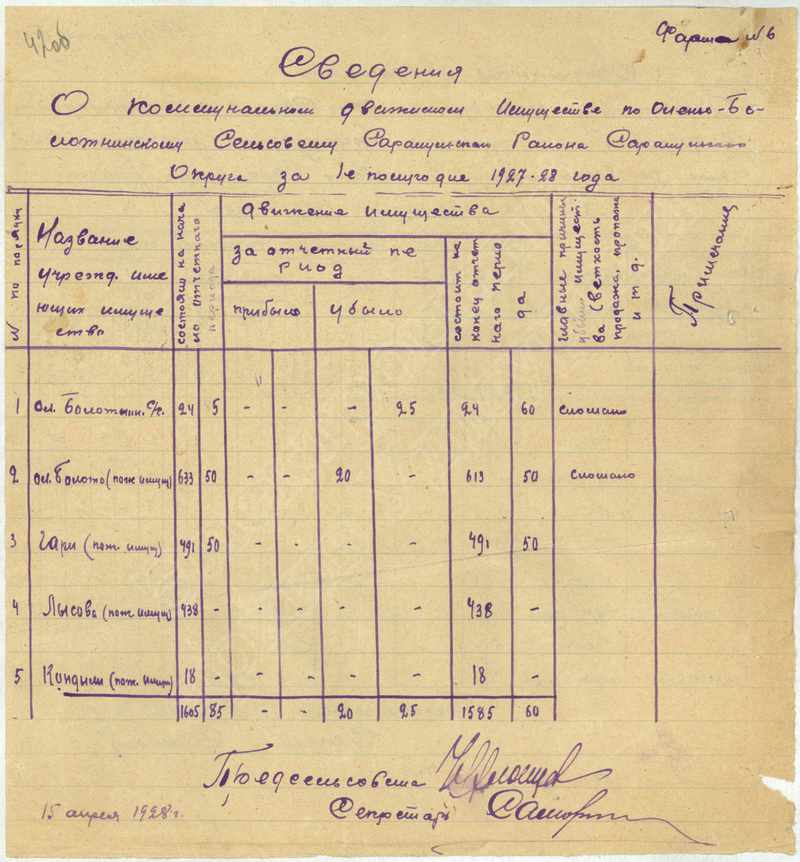 42об
Форма №6
Сведения
О коммунальном движимом Имуществе по Оленье-Бо-
лотнинскому Сельсовету Сарапульского Района Сарапульского
Округа за 1е полугодие 1927-28 года
№ по порядку
Название
учрежд. име
ющих имуще
ства
состояло на нача
ло отчетного
периода
движение имущества
за отчетный пе
риод
прибыло
убыло
состоит на
конец отчет
наго перио
да
главные причины
убыли имущест
ва (ветхость
продажа, пропажа
и т д.
Примечание
1 Ол. Болотнин. С/с. 24 5 - - - 25 24 60 сломано
2 Ол. Болото (пож имущ) 633 50 - - 20 - 613 50 сломано
3 Гари (пож. имущ) 491 50 - - - - 491 50
4 Лысова (пож имущ) 438 - - - - - 438 -
5 Кондыли (пож. имущ) 18 - - - - - 18 -
1605 85 - - 20 25 1585 60
Предсельсовета
Секретарь
15 апреля 1928 г.